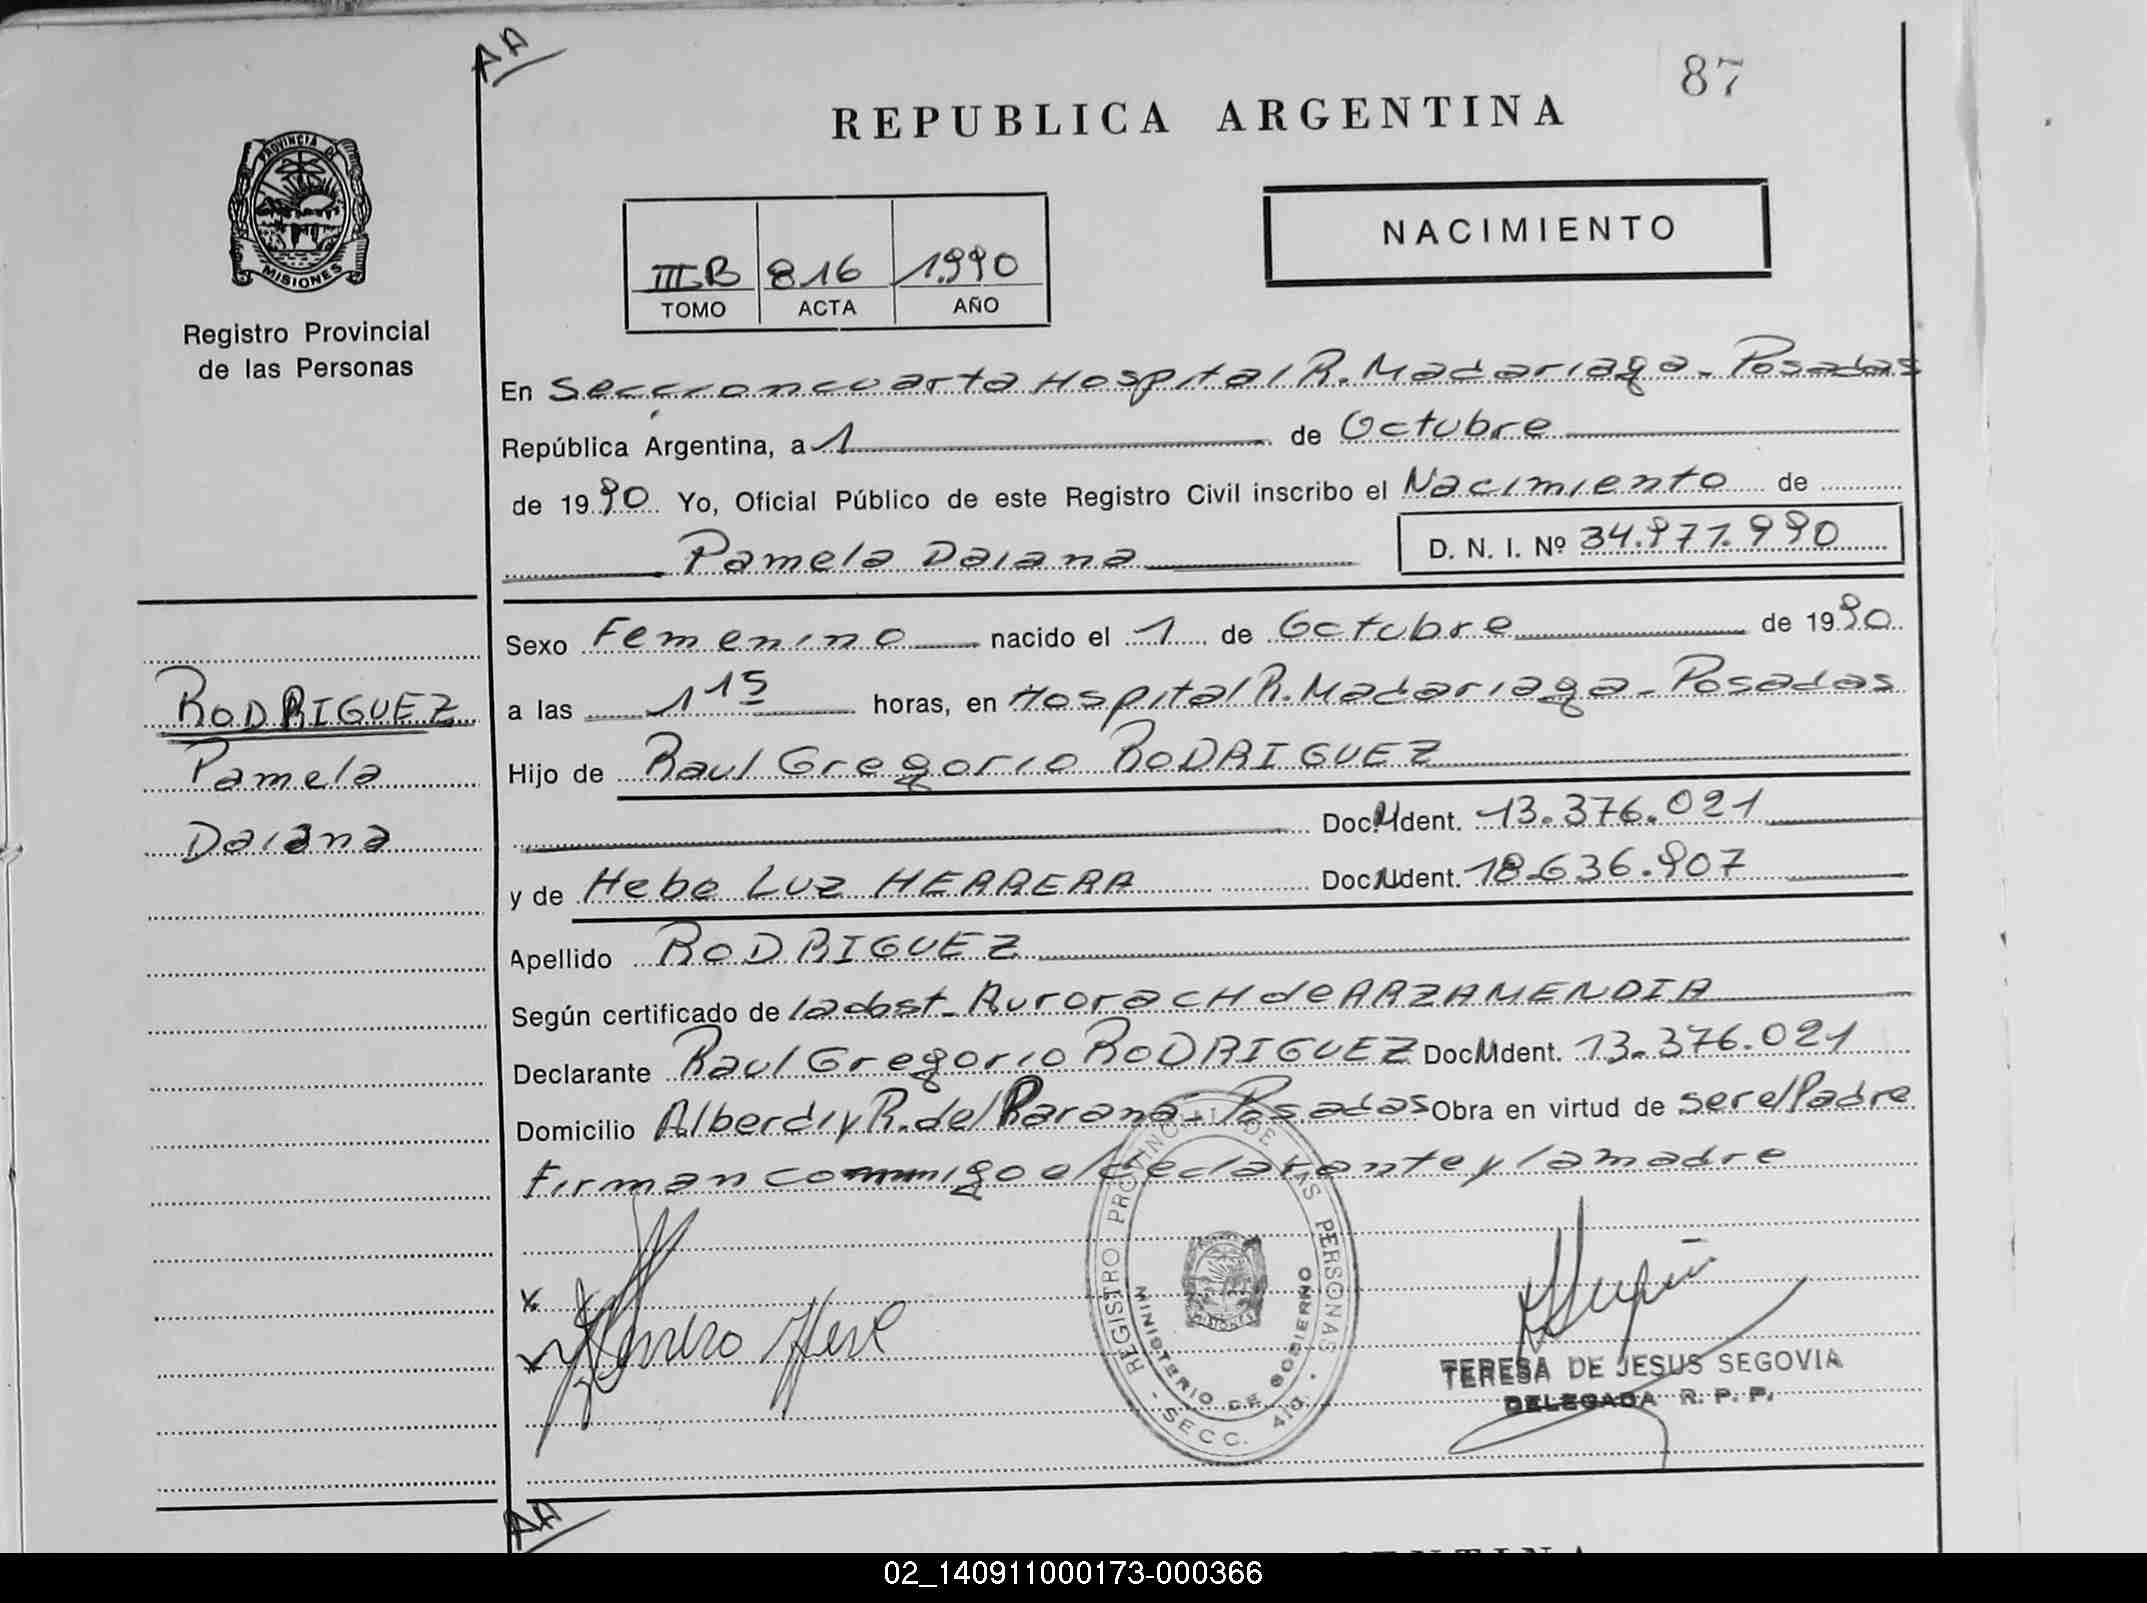 AA
87
REPUBLICA ARGENTINA
PROVINCIA DE
MISIONES
Registro Provincial
de las Personas
NACIMIENTO
III-B 816 1990
TOMO ACTA AÑO
En Sección cuarta Hospital R. Madariaga - Posadas
República Argentina, a 1 de Octubre
de 1990 Yo, Oficial Público de este Registro Civil inscribo el Nacimiento de
Pamela Daiana D. N. I. Nº 34.971.990
Sexo Femenino nacido el 1 de Octubre de 1990
RODRIGUEZ
Pamela
Daiana
a las 1 15 horas, en Hospital R. Madariaga - Posadas
Hijo de Raul Gregorio RODRIGUEZ
Doc. Ident. 13.376.021
y de Hebe Luz HERRERA Doc. Ident. 18.636.907
Apellido RODRIGUEZ
Según certificado de la obst. Aurora CH de ARZAMENDIA
Declarante Raul Gregorio RODRIGUEZ Doc. Ident. 13.376.021
Domicilio Alberdi y R. del Parana - Posadas Obra en virtud de ser el Padre
Firman conmigo el declarante y la madre
REGISTRO PROVINCIAL DE LAS PERSONAS
MINISTERIO DE GOBIERNO
MISIONES
- SECC. 4ta. -
TERESA DE JESUS SEGOVIA
DELEGADA R. P. P.
AA
02_140911000173-000366